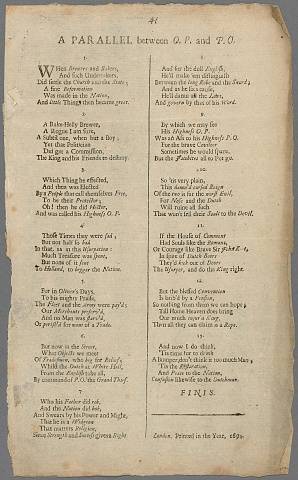 41
A PARALLEL between O. P. and P. O.
1.
When Brewers and Bakers,
And such Undertakers,
Did settle the Church and the State;
A fine Reformation
Was made in the Nation,
And little Things then became great.
2.
A Bake-Holly Brewer,
A Rogue I am sure,
A Subtil one, when but a Boy;
Yet this Politician
Did get a Commission,
The King and his Friends to destroy.
3.
Which Thing he effected,
And then was Elected
By a People that call themselves Free,
To be the Protector;
Oh! then he did Hector,
And was called his Highness O. P.
4.
Those Times they were sad;
But not half so bad
In that, as in this Usurpation:
Much Treasure was spent,
But none of it sent
To Holland, to begger the Nation.
5.
For in Oliver's Days,
To his mighty Praise,
The Fleet and the Army were pay'd;
Our Merchants preserv'd,
And no Man was starv'd,
Or perish'd for want of a Trade.
6.
But now in the Street,
What Objects we meet
Of Tradesmen, who beg for Relief;
Whilst the Dutch at White-Hall,
From the English take all,
By command of P. O. the Grand Thief.
7.
Who his Father did rob,
And the Nation did bob,
And Swears by his Power and Might,
That he is a
That matters Religion,
Since Strength and Success gives a Right
8.
And for the dull English,
He'll make 'em distinguish
Between the long Robe and the Sword;
And as he
He'll damn all the Laws,
And govern by that of his Word.
9.
By which we may see
His Highness O. P.
Was an Ass to his Highness P. O.
For the brave
Sometimes he would spare,
But the all to Pot go.
10.
So 'tis very plain,
This damn'd cursed Reign
Of the two is far the most Evil,
For Nose and the Dutch
Will ruine all such
That won't sell their Souls to the Devil.
11.
If the House of Commons
Had Souls like the Romans,
Or Courage like Brave Sir
In spite of Dutch Boers
They'd kick out of Doors
The Usurper, and do the King right.
12.
But the blessed Convention
Is brib'd by a Pension,
So nothing from them we can hope;
Till Home Heaven does bring
Our much King,
Then all they can claim is a Rope.
13.
And now I do think,
'Tis time for to drink
A Bumper, don't think it too much Man;
'Tis the Restoration,
And Peace to the Nation,
Confusion likewise to the Dutchman.
FINIS.
London, Printed in the Year, 1694.